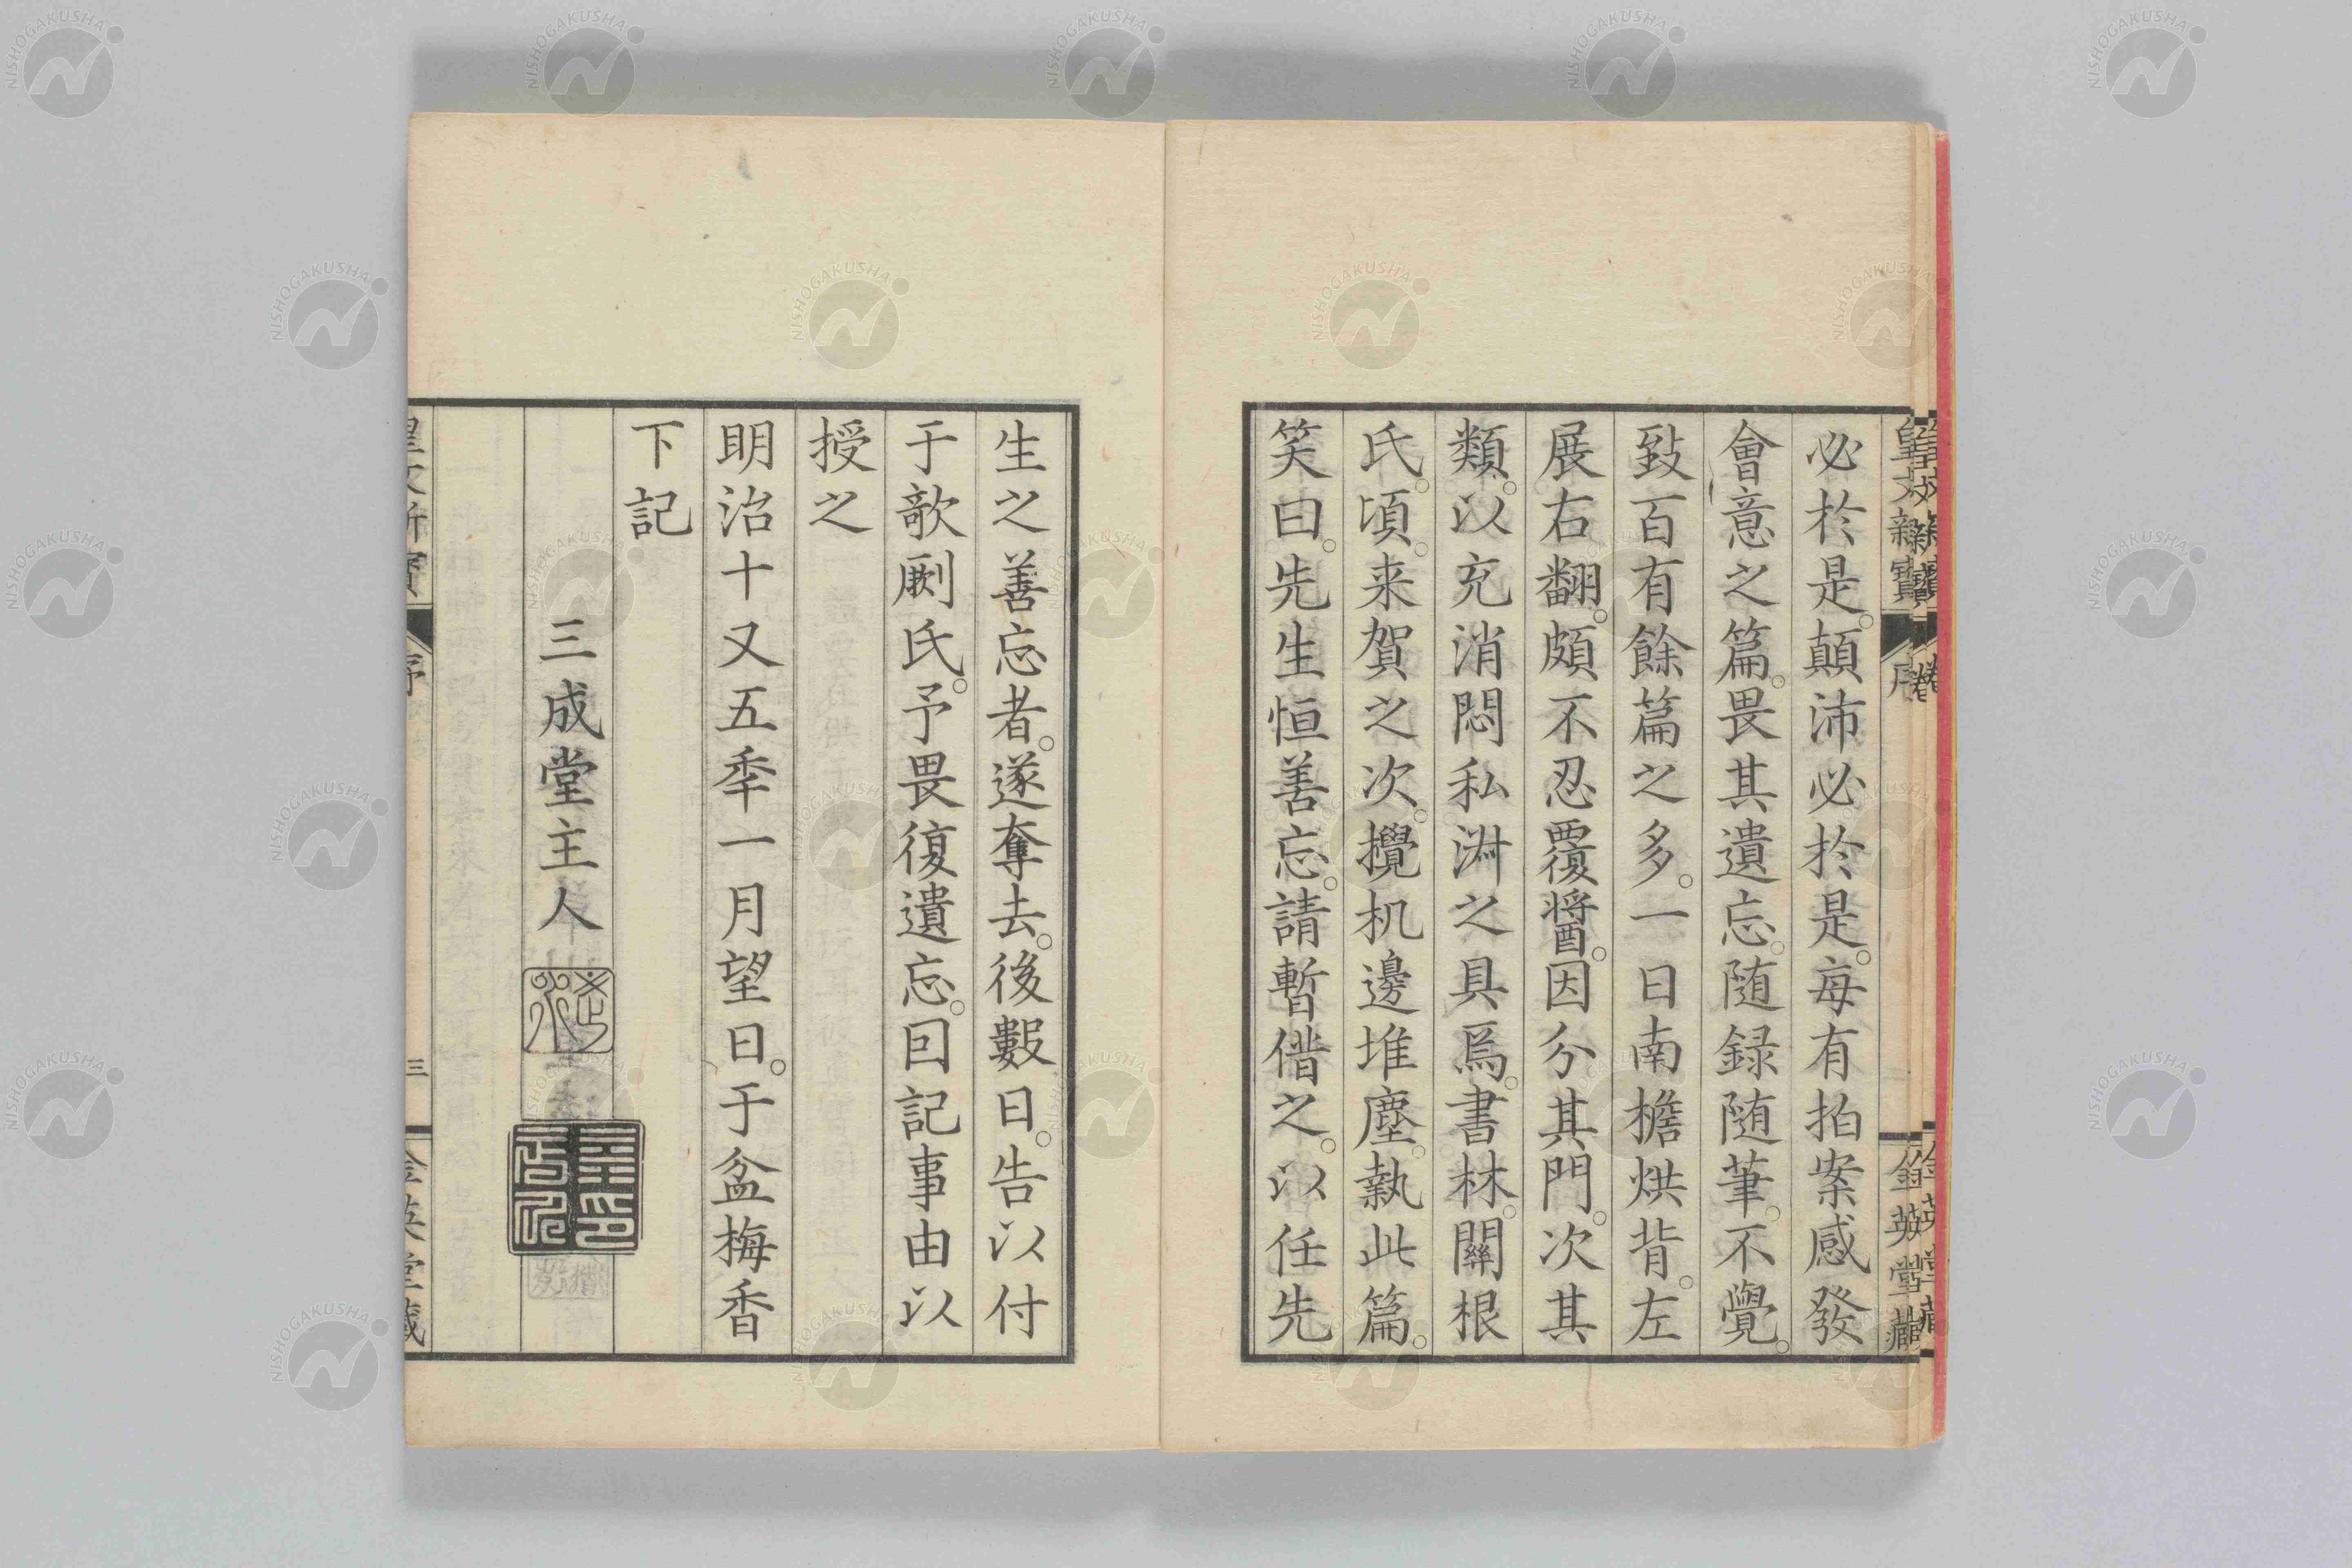 必於是。顛沛必於是。每有拍案感發
會意之篇。畏其遺忘。随録随筆。不覺。
致百有餘篇之多。一日南檐烘背。左
展右翻。頗不忍覆醬。因分其門。次其
類。以充消悶私淑之具焉。書林。關根
氏。頃。来賀之次。攪机邊堆塵。執此篇。
笑曰。先生恒善忘。請暫借之。以任先
生之善忘者。遂奪去。後數日。告以付
于歌劂氏。予畏復遺忘。囙記事由以
授之
明治十又五秊一月望日。于盆梅香
下記
三成堂主人
序
三
NISHOGAKUSHA